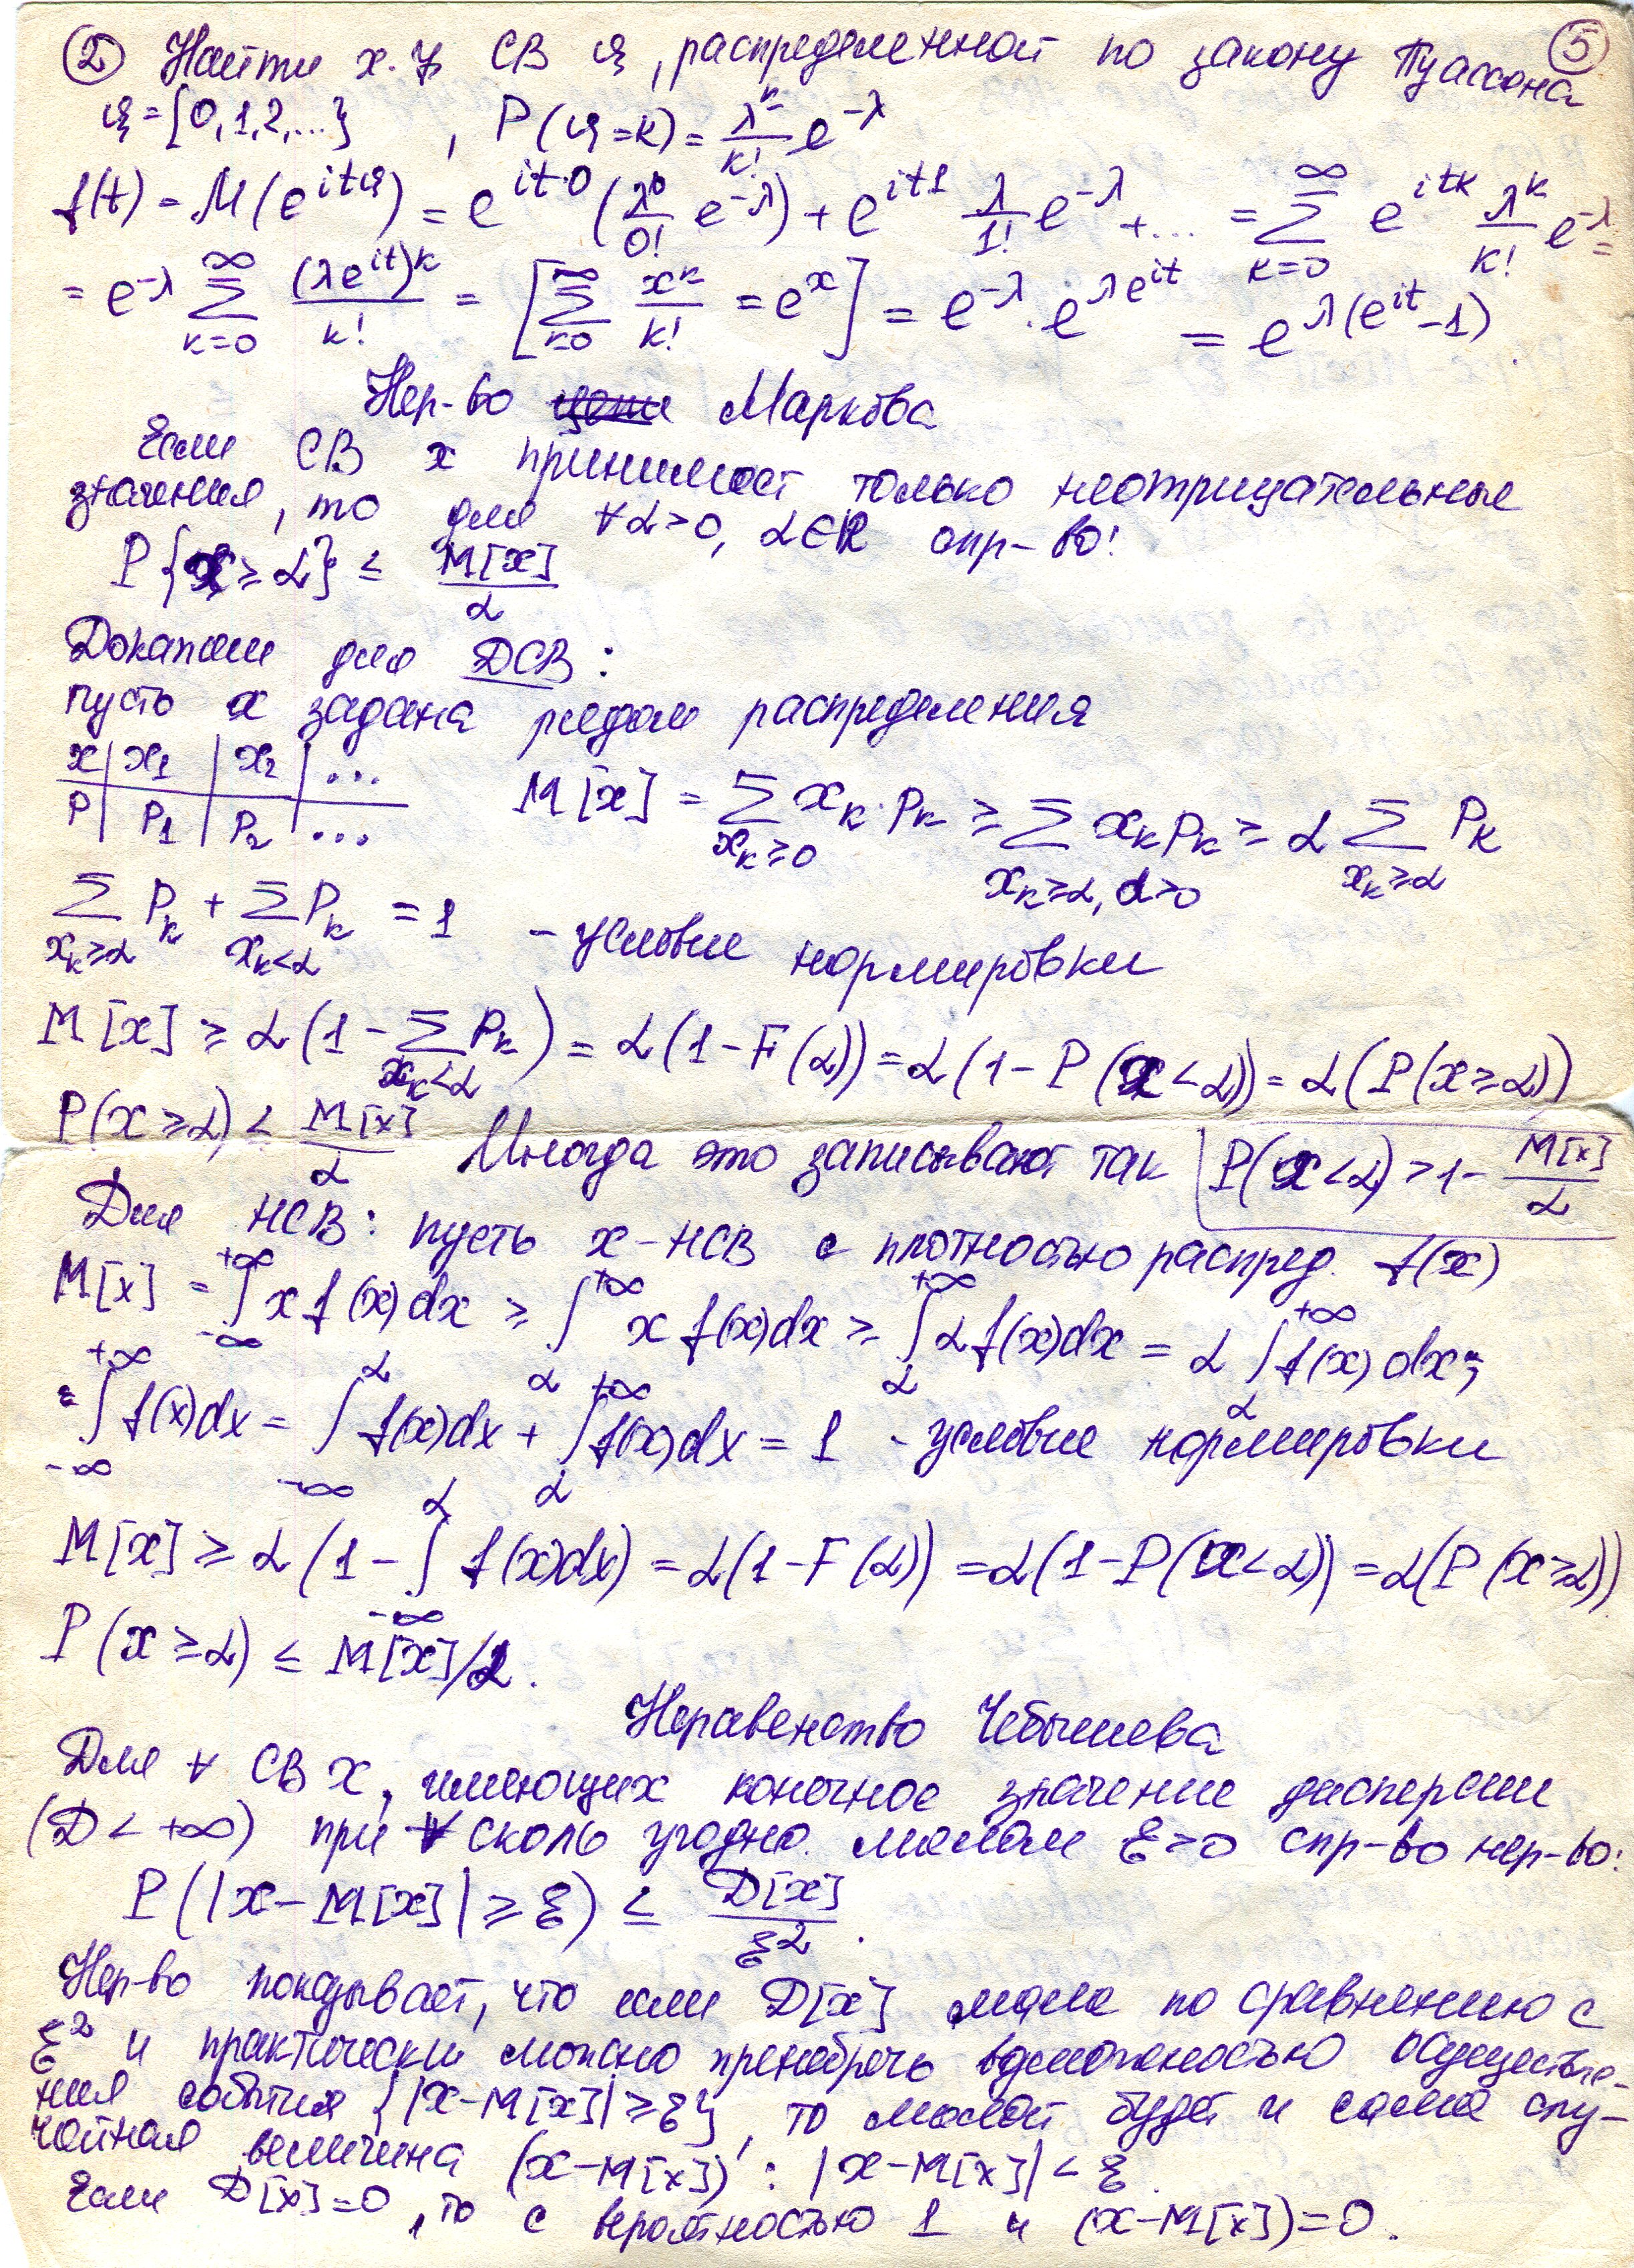 ② Найти х.ф СВ ψ, распределенной по закону Пуассона ⑤
ψ={0,1,2,...}, P(ψ=k)=λ^k/k! e^-λ
f(t)=M(e^itψ)=e^it·0(λ^0/0! e^-λ)+e^it1 λ/1! e^-λ+...=∑_{k=0}^∞ e^itk λ^k/k! e^-λ=
=e^-λ ∑_{k=0}^∞ (λe^it)^k/k! = [∑_{k=0}^∞ x^k/k! = e^x] = e^-λ·e^{λe^it} = e^{λ(e^it-1)}.
Нер-во Маркова
Если СВ x принимает только неотрицательные
значения, то для ∀α>0, α∈R спр-во:
P{x≥α} ≤ M[x]/α
Докажем для ДСВ:
пусть x задана рядом распределения
x | x₁ | x₂ | ...
P | P₁ | P₂ | ...
M[x] = ∑_{x_k≥0} x_k·p_k ≥ ∑_{x_k≥α, α>0} x_k p_k ≥ α ∑_{x_k≥α} P_k
∑_{x_k≥α} P_k + ∑_{x_k<α} P_k = 1 - условие нормировки
M[x] ≥ α(1-∑_{x_k<α} P_k) = α(1-F(α)) = α(1-P(x<α)) = α(P(x≥α))
P(x≥α) < M[x]/α Иногда это записывают так P(x<α)>1-M[x]/α
Для НСВ: пусть x-НСВ с плотностью распред. f(x)
M[x] = ∫_{-∞}^{+∞} x f(x)dx ≥ ∫_α^{+∞} x f(x)dx ≥ ∫_α^{+∞} αf(x)dx = α ∫_α^{+∞} f(x)dx;
∫_{-∞}^{+∞} f(x)dx = ∫_{-∞}^α f(x)dx + ∫_α^{+∞} f(x)dx = 1 - условие нормировки
M[x] ≥ α(1-∫_{-∞}^α f(x)dx) = α(1-F(α)) = α(1-P(x<α)) = α(P(x≥α))
P(x≥α) ≤ M[x]/α.
Неравенство Чебышева
Для ∀ СВ X, имеющих конечное значение дисперсии
(D<+∞) при ∀ сколь угодно малом ε>0 спр-во нер-во:
P(|x-M[x]|≥ε) ≤ D[x]/ε².
Нер-во показывает, что если D[x] мала по сравнению с
ε² и практически можно пренебречь возможностью осуществле-
ния события {|x-M[x]|≥ε}, то малой будет и сама слу-
чайная величина (x-M[x]): |x-M[x]|<ε.
Если D[x]=0, то с вероятностью 1 и (x-M[x])=0.